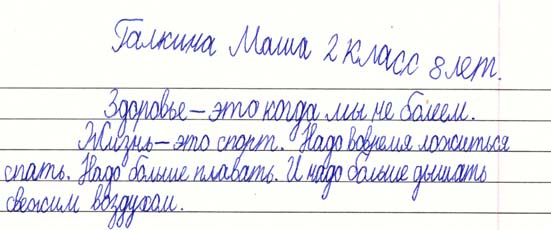 Галкина Маша 2 класс 8 лет.
Здоровье – это когда мы не болеем.
Жизнь – это спорт. Надо вовремя ложиться
спать. Надо больше плавать. И надо больше дышать
свежим воздухом.